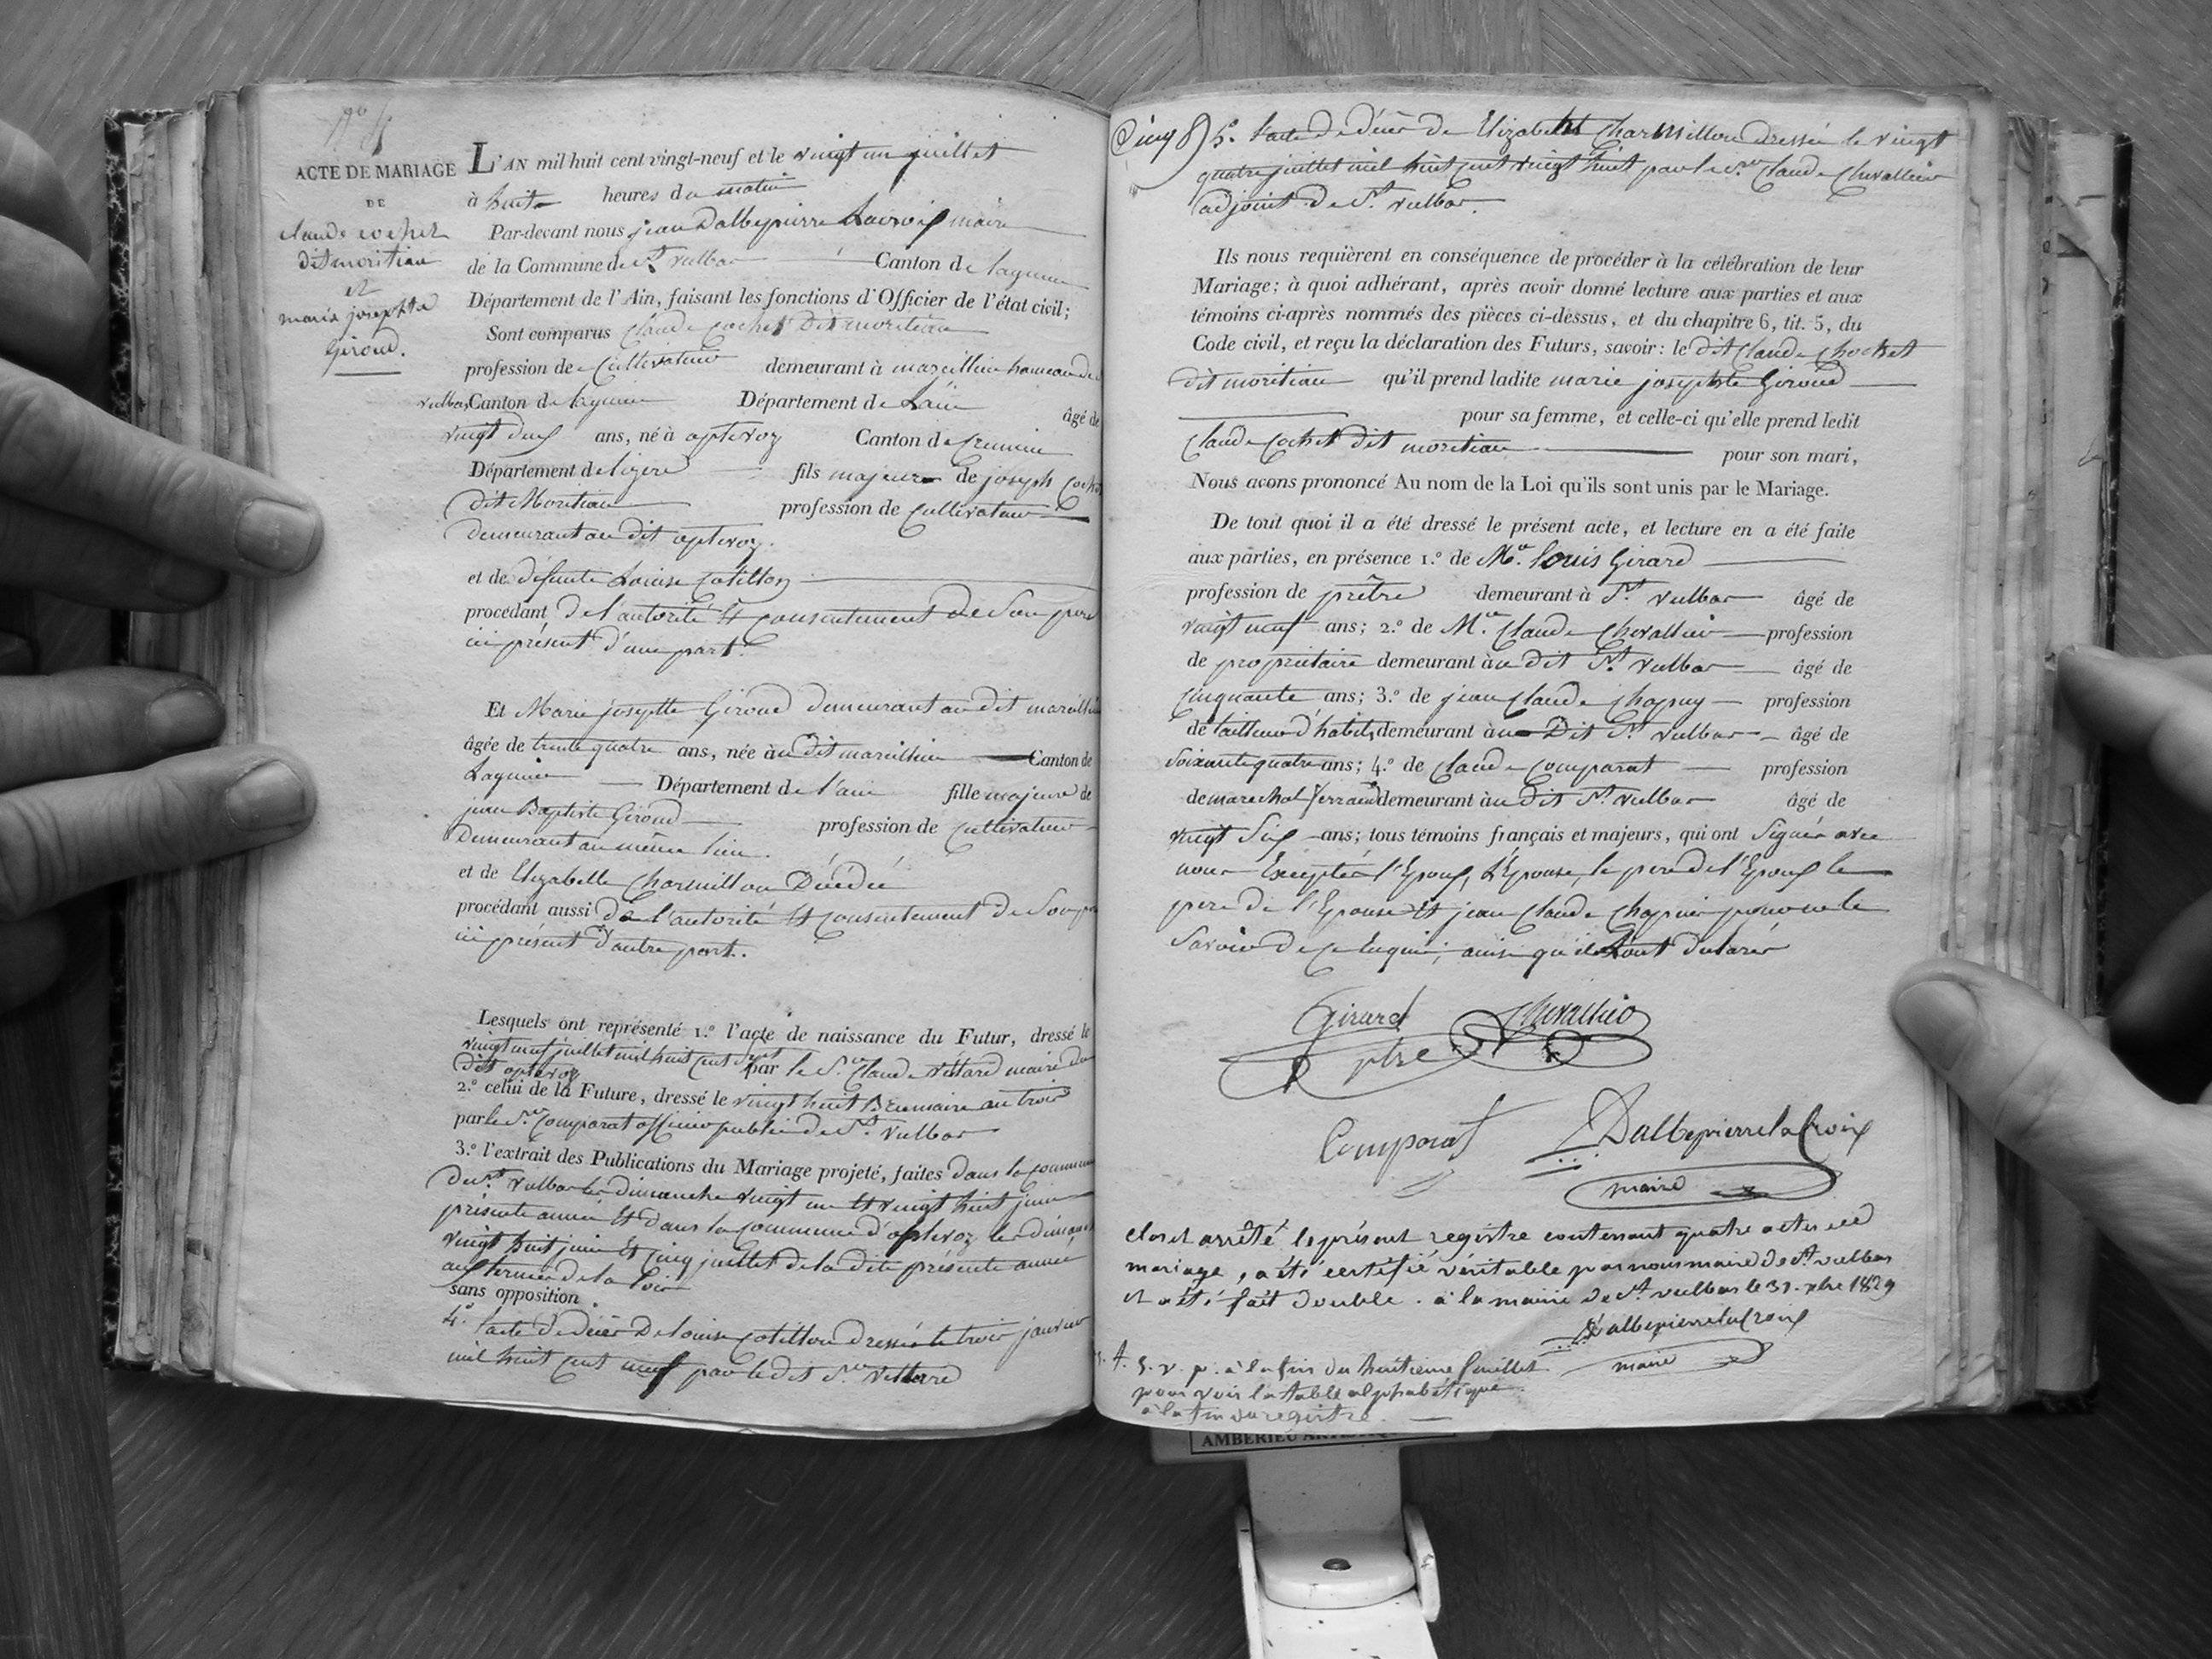 N° 4
ACTE DE MARIAGE
DE
claude cochet
dit moritian
et
marie josephte
Giroud.
L'AN mil huit cent vingt-neuf et le vingt un juillet
à huit heures du matin
Par-devant nous jean Dalbepierre Lacroix maire
de la Commune de St vulbas Canton de lagnieu
Département de l'Ain, faisant les fonctions d'Officier de l'état civil;
Sont comparus Claude Cochet dit moritian
profession de Cultivateur demeurant à marcillieu hameau de
vulbas, Canton de lagnieu Département de L'ain âgé de
vingt deux ans, né à optevoz Canton de Cremieu
Département de lizere fils majeur de joseph Cochet
dit Moritian profession de Cultivateur
demeurant au dit optevoz.
et de défunte Louise Cotillon
procédant de l'autorité et consentement de Son pere
ici présent d'une part.
Et Marie josephte Giroud demeurant au dit marcillieu
âgée de trente quatre ans, née au dit marcillieu Canton de
Lagnieu Département de l'ain fille majeure de
jean Baptiste Giroud profession de Cultivateur
Demeurant au même lieu.
et de Elizabelle Charmillon Décédée
procédant aussi de l'autorité et consentement de Son pere
ici présent d'autre part.
Lesquels ont représenté 1.° l'acte de naissance du Futur, dressé le
vingt neuf juillet mil huit cent sept par le Sr. Claude Vittard maire du
dit optevoz
2.° celui de la Future, dressé le vingt huit Brumaire an trois
par le Sr. Comparat officier public de St. Vulbas
3.° l'extrait des Publications du Mariage projeté, faites dans la commune
de St. Vulbas les dimanche vingt un et vingt huit juin
présente année et dans la commune d'optevoz les dimanche
vingt huit juin et cinq juillet de la dite présente année
aux termes de la Loi
sans opposition
4.° l'acte de décès De louise Cotillon dressé le trois janvier
mil huit cent neuf par le dit Sr. Vittard
5.° l'acte de décès de Elizabeht Charmillon dressée le vingt
quatre juillet mil huit cent vingt huit par le Sr. Claude Chevallier
adjoint de St. Vulbas.
Ils nous requièrent en conséquence de procéder à la célébration de leur
Mariage; à quoi adhérant, après avoir donné lecture aux parties et aux
témoins ci-après nommés des pièces ci-dessus, et du chapitre 6, tit. 5, du
Code civil, et reçu la déclaration des Futurs, savoir: le dit Claude Chochet
dit moritian qu'il prend ladite marie josephte Giroud
pour sa femme, et celle-ci qu'elle prend ledit
Claude Cochet dit moritian pour son mari,
Nous avons prononcé Au nom de la Loi qu'ils sont unis par le Mariage.
De tout quoi il a été dressé le présent acte, et lecture en a été faite
aux parties, en présence 1.° de Mr. Louis Girard
profession de prêtre demeurant à St. vulbas âgé de
vingt neuf ans; 2.° de Mr. Claude Chevallier profession
de propriétaire demeurant au dit St. vulbas âgé de
Cinquante ans; 3.° de jean Claude Chapuy profession
de tailleur d'habits, demeurant au Dit St. Vulbas âgé de
Soixante quatre ans; 4.° de Claude Comparat profession
de marechal ferrand demeurant au dit St. Vulbas âgé de
vingt Six ans; tous témoins français et majeurs, qui ont Signés avec
nous Exceptés l'Epoux, L'Epouse, le pere de l'Epoux le
pere de l'Epouse et jean Claude Chapuis pour ne le
Savoir de ce Enquis, ainsi qu'ils L'ont declarés
Girard Chevallier
ptre
Comparat Dalbepierre la Croix
maire
clos et arrêté le présent registre contenant quatre actes de
mariage, a été certifié véritable par nous maire de St. vulbas
et a été fait double. à la mairie de St. vulbas le 31. xbre 1829
Dalbepierre lacroix
maire
S. v. p. à la fin du huitieme feuillet
pour voir la table alphabétique
à la fin du registre.
AMBERIEU